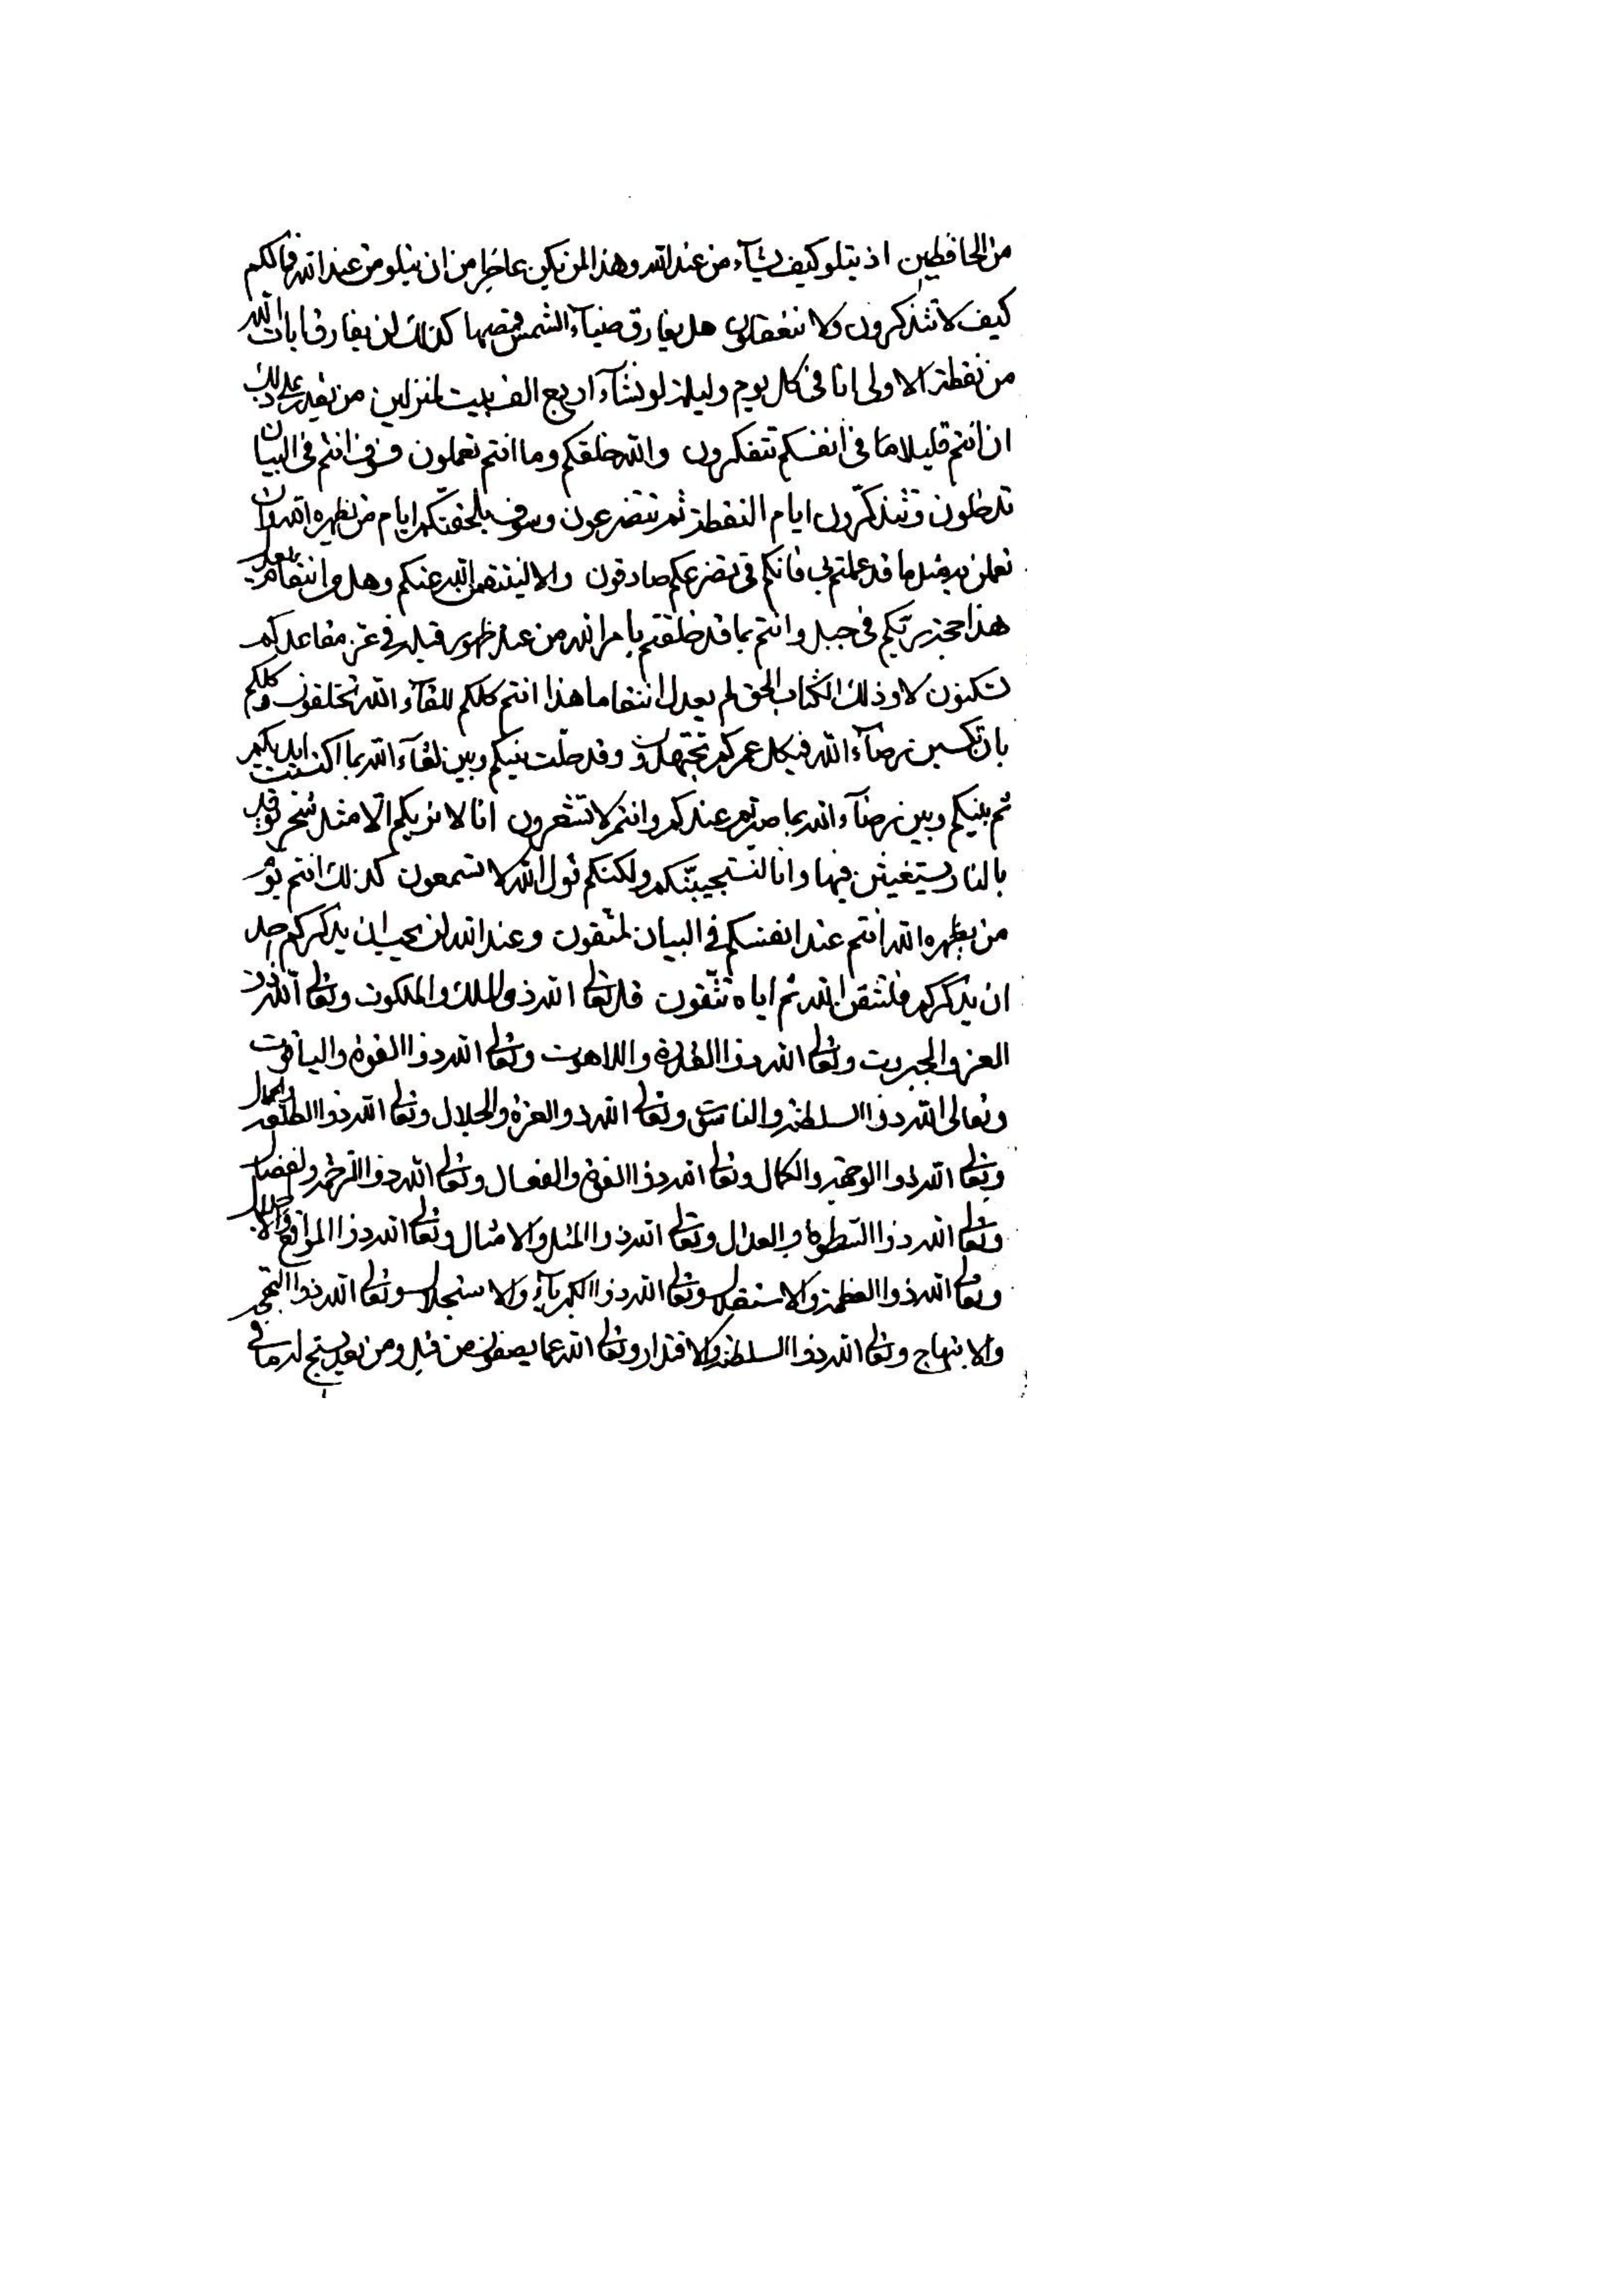 من الحافظين اذ يتلو كيف يشآء من عند الله وهذا لم يكن عاجزا من ان يتلو من عند الله فمالكم
كيف لا تتذكرون ولا تتعقلون هل يفارق ضيآء الشمس قمصها كذلك لن يفارق ايات الله
من نقطة الاولى انا فى كل يوم وليلة لو نشآء اربع الف بيت لمنزلين من يقدر على ذلك
ان انتم قليلا ما فى انفسكم تتفكرون والله خلقكم وما انتم تعملون فسوف انتم فى البيان
تدخلون وتتذكرون ايام النقطة ثم تتضرعون وسوف يلحقنكم ايام من يظهره الله ان
تعملن به مثل ما قد عملتم بى فانكم فى تضرعكم صادقون والا لينتقمن الله عنكم وهل من انتقام يعدل
هذا حجة ربكم فى جبل وانتم بما قد خلقتم بامر الله من عند ظهور قبله فى عز مقاعدكم
تسكنون لا وذلك الكتاب الحق لم يعدل انتقاما هذا انتم كلكم للقآء الله تخلقون وكلكم
بان تكسبن رضآء الله فى كل عمركم تجتهدون وقد حلت بينكم وبين لقآء الله بما اكتسبت ايديكم
ثم بينكم وبين رضآء الله بما صرتم عندكم وانتم لا تشعرون انا لا نريكم الا مثل شجر توقد
بالنار يستغيثن فيها وانا لنستجيبنكم ولكنكم قول الله لا تسمعون كذلك انتم يوم
من يظهره الله انتم عند انفسكم فى البيان لمتقون وعند الله لن يحب ان يذكركم احد
ان يذكركم فلتتقن الله ثم اياه تتقون قل تعالى الله ذو الملك والملكوت وتعالى الله ذو
العز والجبروت وتعالى الله ذو القدرة واللاهوت وتعالى الله ذو القوة والياقوت
وتعالى الله ذو السلطنة والناسوت وتعالى الله ذو العزة والجلال وتعالى الله ذو الطلعة والجمال
وتعالى الله ذو الوجهة والكمال وتعالى الله ذو القوة والفعال وتعالى الله ذو الرحمة والفضال
وتعالى الله ذو السطوة والعدال وتعالى الله ذو المثل والامثال وتعالى الله ذو المواقع والاجلال
وتعالى الله ذو العظمة والاستقلال وتعالى الله ذو الكبريآء والاستجلال وتعالى الله ذو
والابتهاج وتعالى الله ذو السلطنة والاقتدار وتعالى الله عما يصفون من قبل ومن بعد يسبح له ما فى